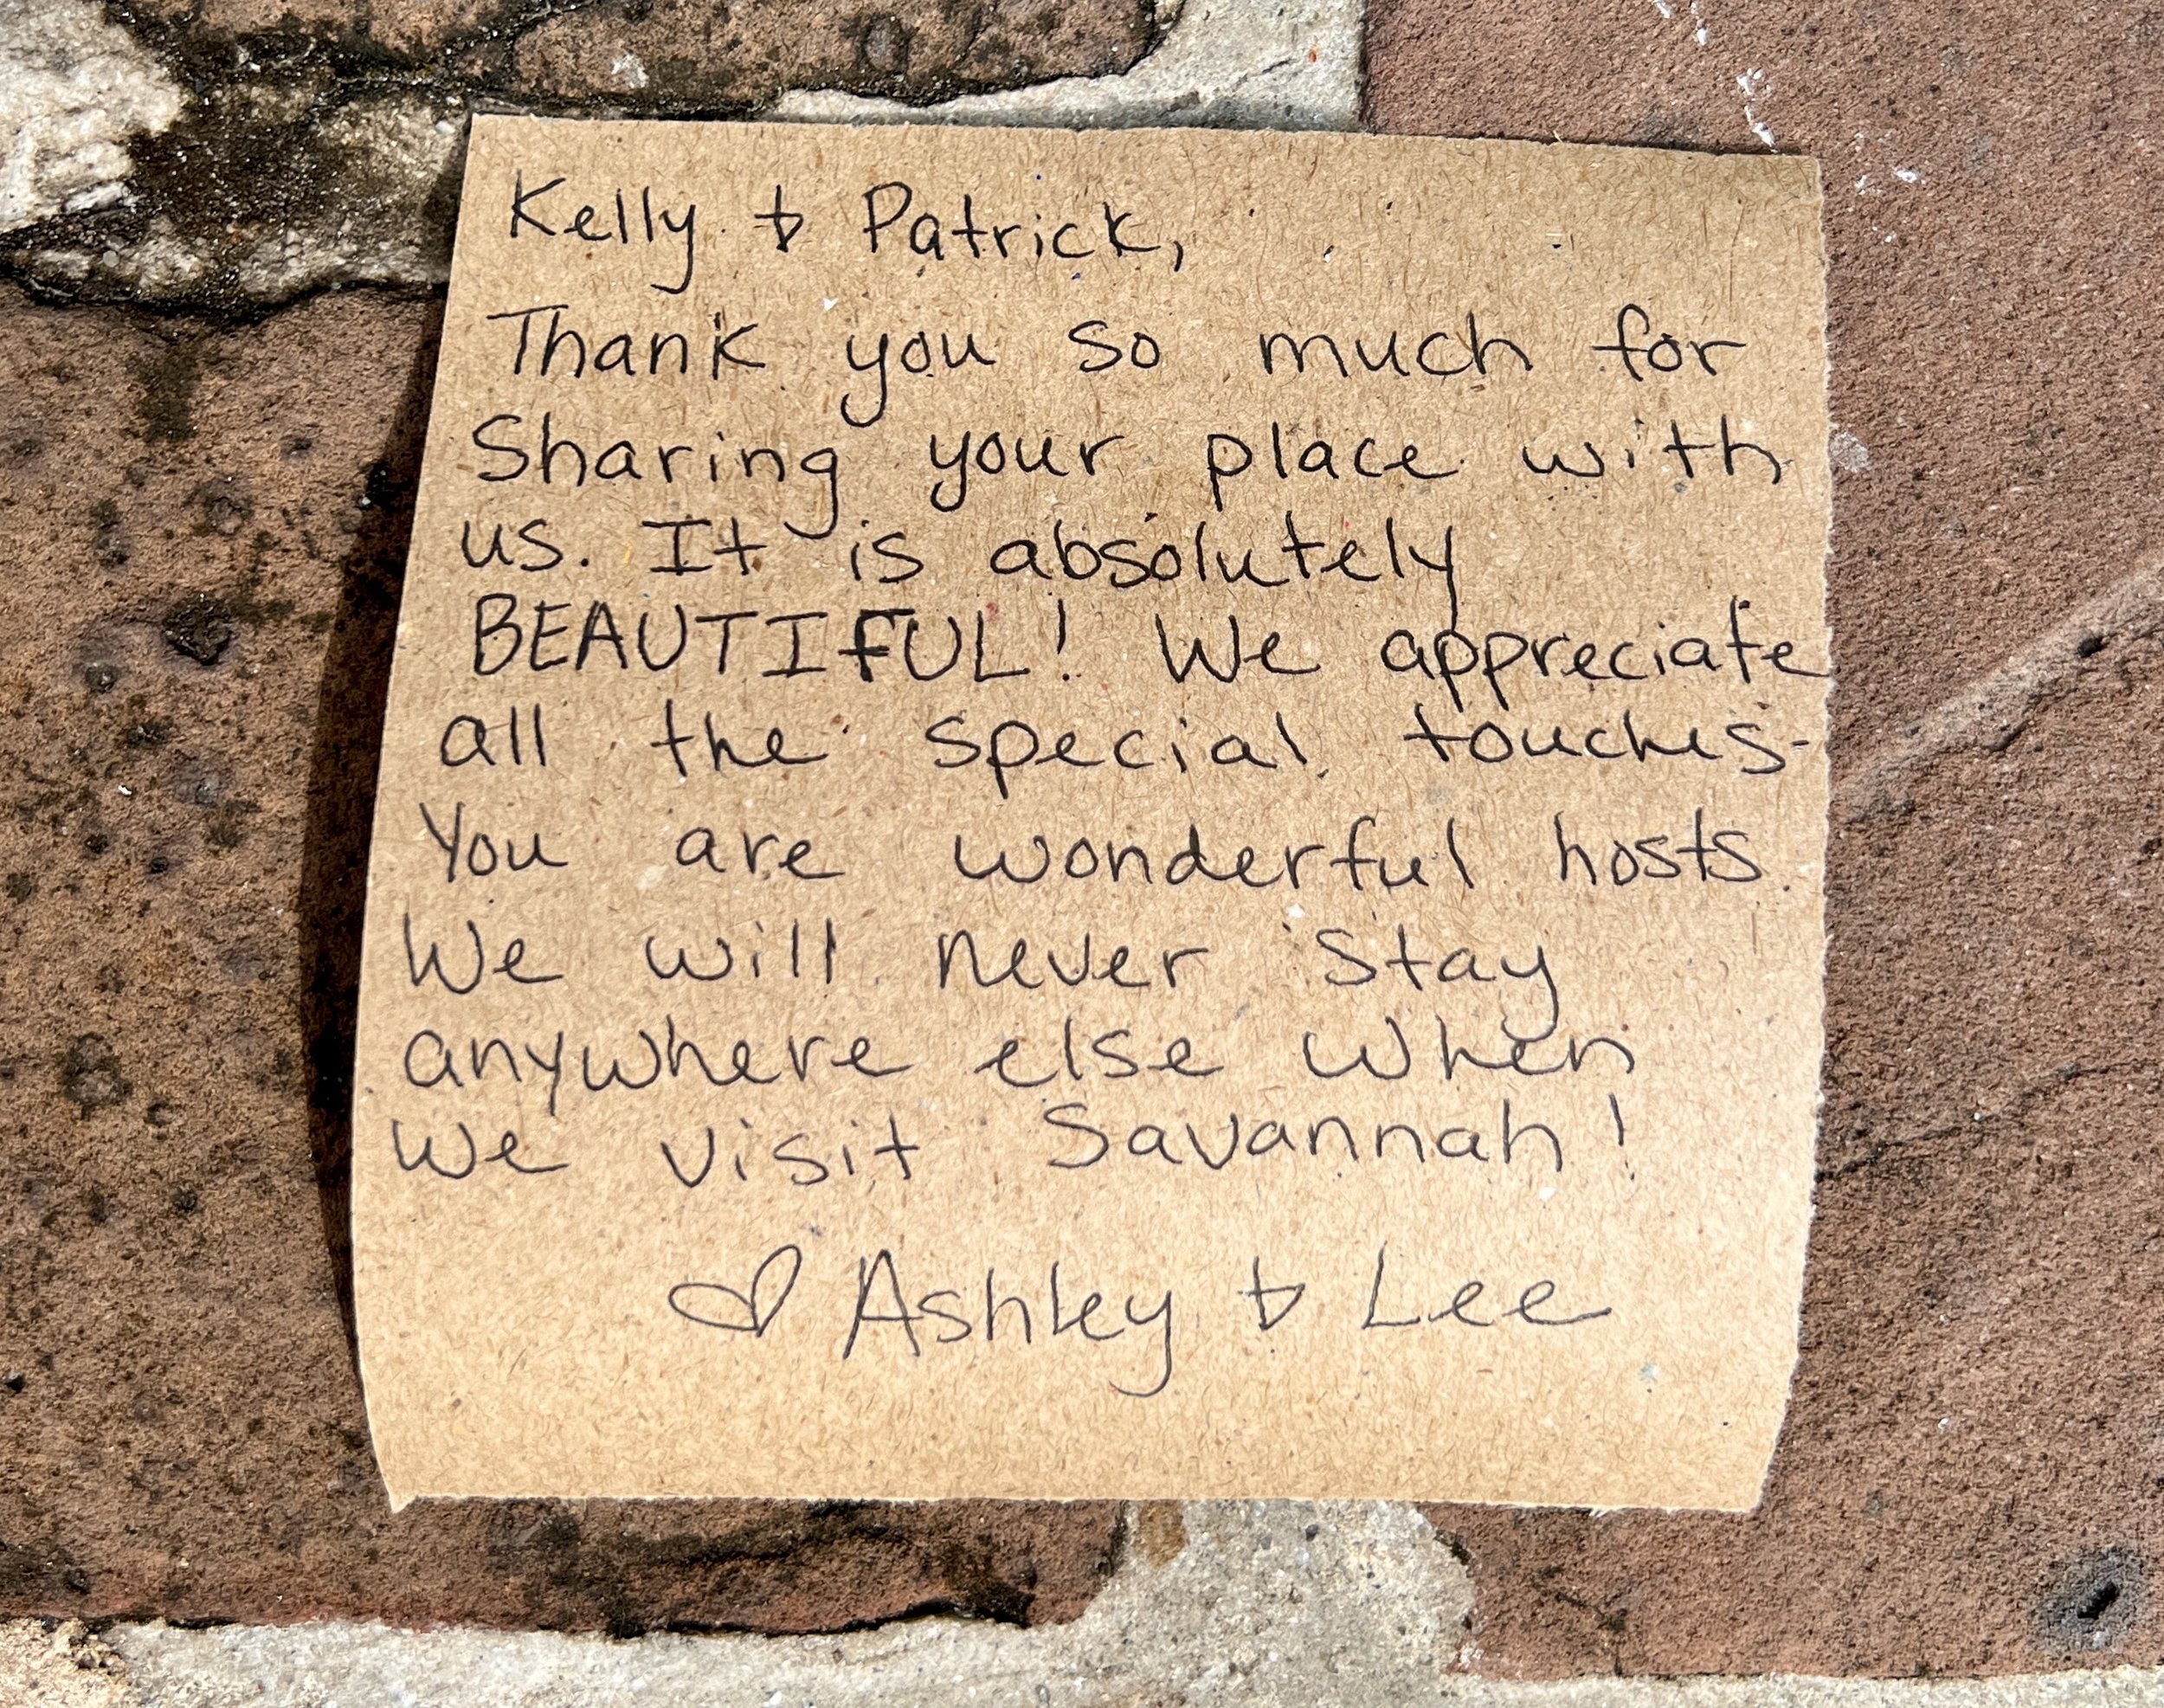 Kelly & Patrick,
Thank you so much for
Sharing your place with
us. It is absolutely
BEAUTIFUL! We appreciate
all the special touches-
You are wonderful hosts.
We will never stay
anywhere else when
we visit Savannah!
♡ Ashley & Lee